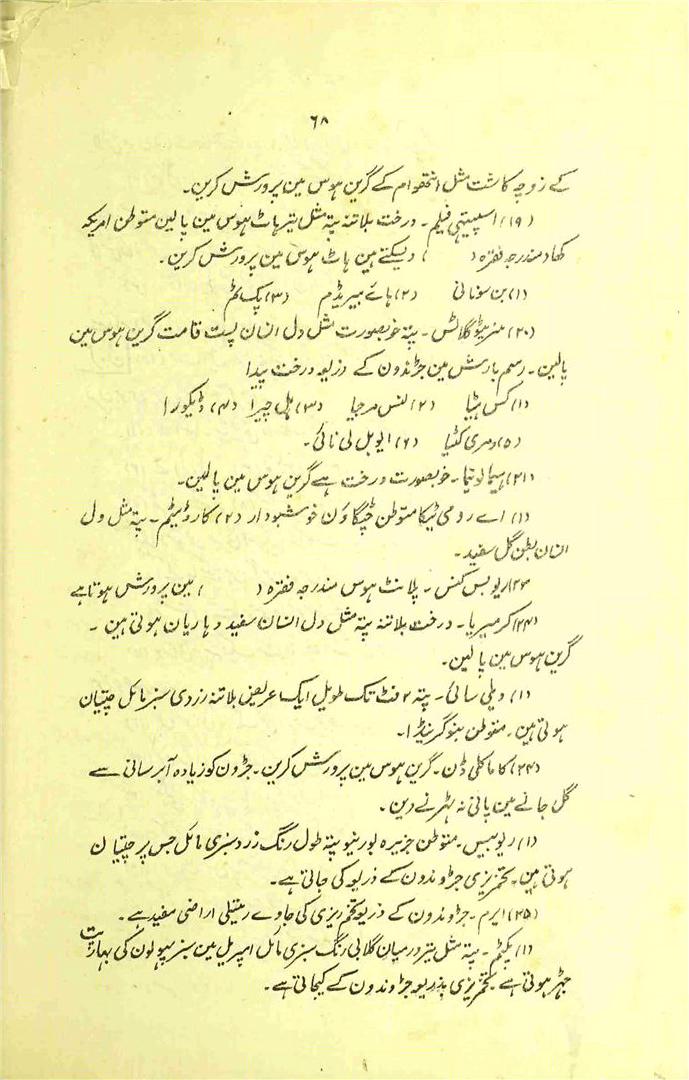 ۶۸
کے زوچہ کاشت مثل انتھوام کے گرین ہوس مین پرورش کرین۔
(۱۹) اسپیتھی فیلم۔ درخت بلاتنہ پتہ مثل تیر ہاٹ ہوس مین پالین متوطن امریکہ
کھاد مندرجہ فقرہ ( ) دیسکتے ہین ہاٹ ہوس مین پرورش کرین۔
(۱) بن سونانی (۲) ہائے بیریڈم (۳) پک ٹم
(۲۰) سنریٹو گلاٹس۔ پتہ خوبصورت مثل دل انسان پست قامت گرین ہوس مین
پالین۔ رسم بارش مین جڑندون کے ذریعہ درخت پیدا
(۱) کس ہٹیا (۲) لنس مرجیا (۳) ہلی چیرا (۴) ڈیکورا
(۵) دمری کٹیا (۶) ایوبل لی نائی۔
(۲۱) ہیمالونیما۔ خوبصورت درخت ہے گرین ہوس مین پالین۔
(۱) اے رومی ٹیکا متوطن چٹگاؤن خوشبودار (۲) کارڈیٹم۔ پتہ مثل دل
انسان بطن گل سفید۔
۲۳) ریوبس کنس۔ پلانٹ ہوس مندرجہ فقرہ ( ) مین پرورش ہوتا ہے
(۲۴) کرمیریا۔ درخت بلاتنہ پتہ مثل دل انسان سفید دہاریان ہوتی ہین۔
گرین ہوس مین پالین۔
(۱) ویلی سائی۔ پتہ ۲ فٹ تک طویل ایک عریض بلاتنہ زردی سبز مائل چتیان
ہوتی ہین۔ متوطن بنوگرینڈا۔
(۲۴) کاماکلی ڈن۔ گرین ہوس مین پرورش کرین۔ جڑون کو زیادہ آبرسانی سے
گل جانے مین پانی نہ ٹہرنے دین۔
(۱) ریوبیس۔ متوطن جزیرہ بورنیو پتہ طول رنگ زرد سبزی مائل جس پر چتیان
ہوتی ہین۔ تخمریزی جڑوندون کے ذریعہ کی جاتی ہے۔
(۲۵) ایرم۔ جڑوندون کے ذریعہ تخم ریزی کی جاوے ریتیلی اراضی مفید ہے۔
(۱) پکٹم۔ پتہ مثل تیر درمیان گلابی رنگ سبزی مائل اپریل مین سبز پہولون کی بہاریت
جہڑ ہوتی ہے تخمریزی بذریعہ جڑوندون کے کیجاتی ہے۔